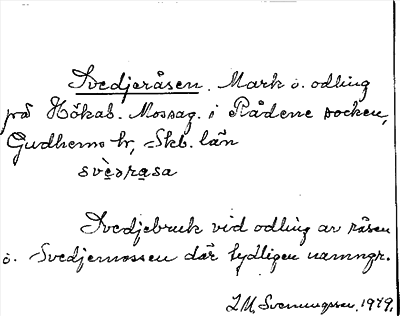 Svedjeråsen. Mark o. odling
på Hökab. Mossag. i Rådene socken,
Gudhems hr, Skb. län
svèdråsa
Svedjebruk vid odling av råsen
o. Svedjemossen där tydligen namngr.
I.M. Svenungsson, 1979.